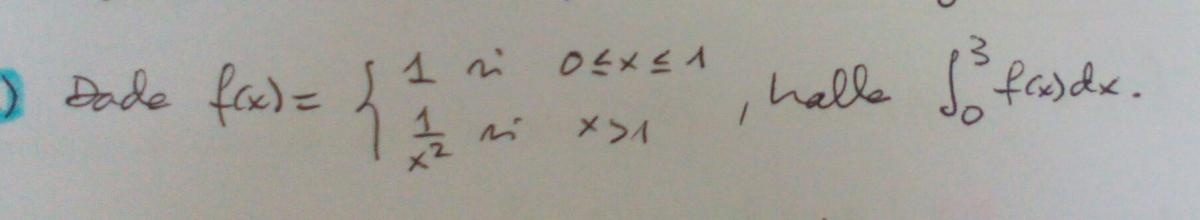 ) Dada f(x) = { 1 si 0 ≤ x ≤ 1
1/x² si x > 1 , halla ∫₀³ f(x) dx.